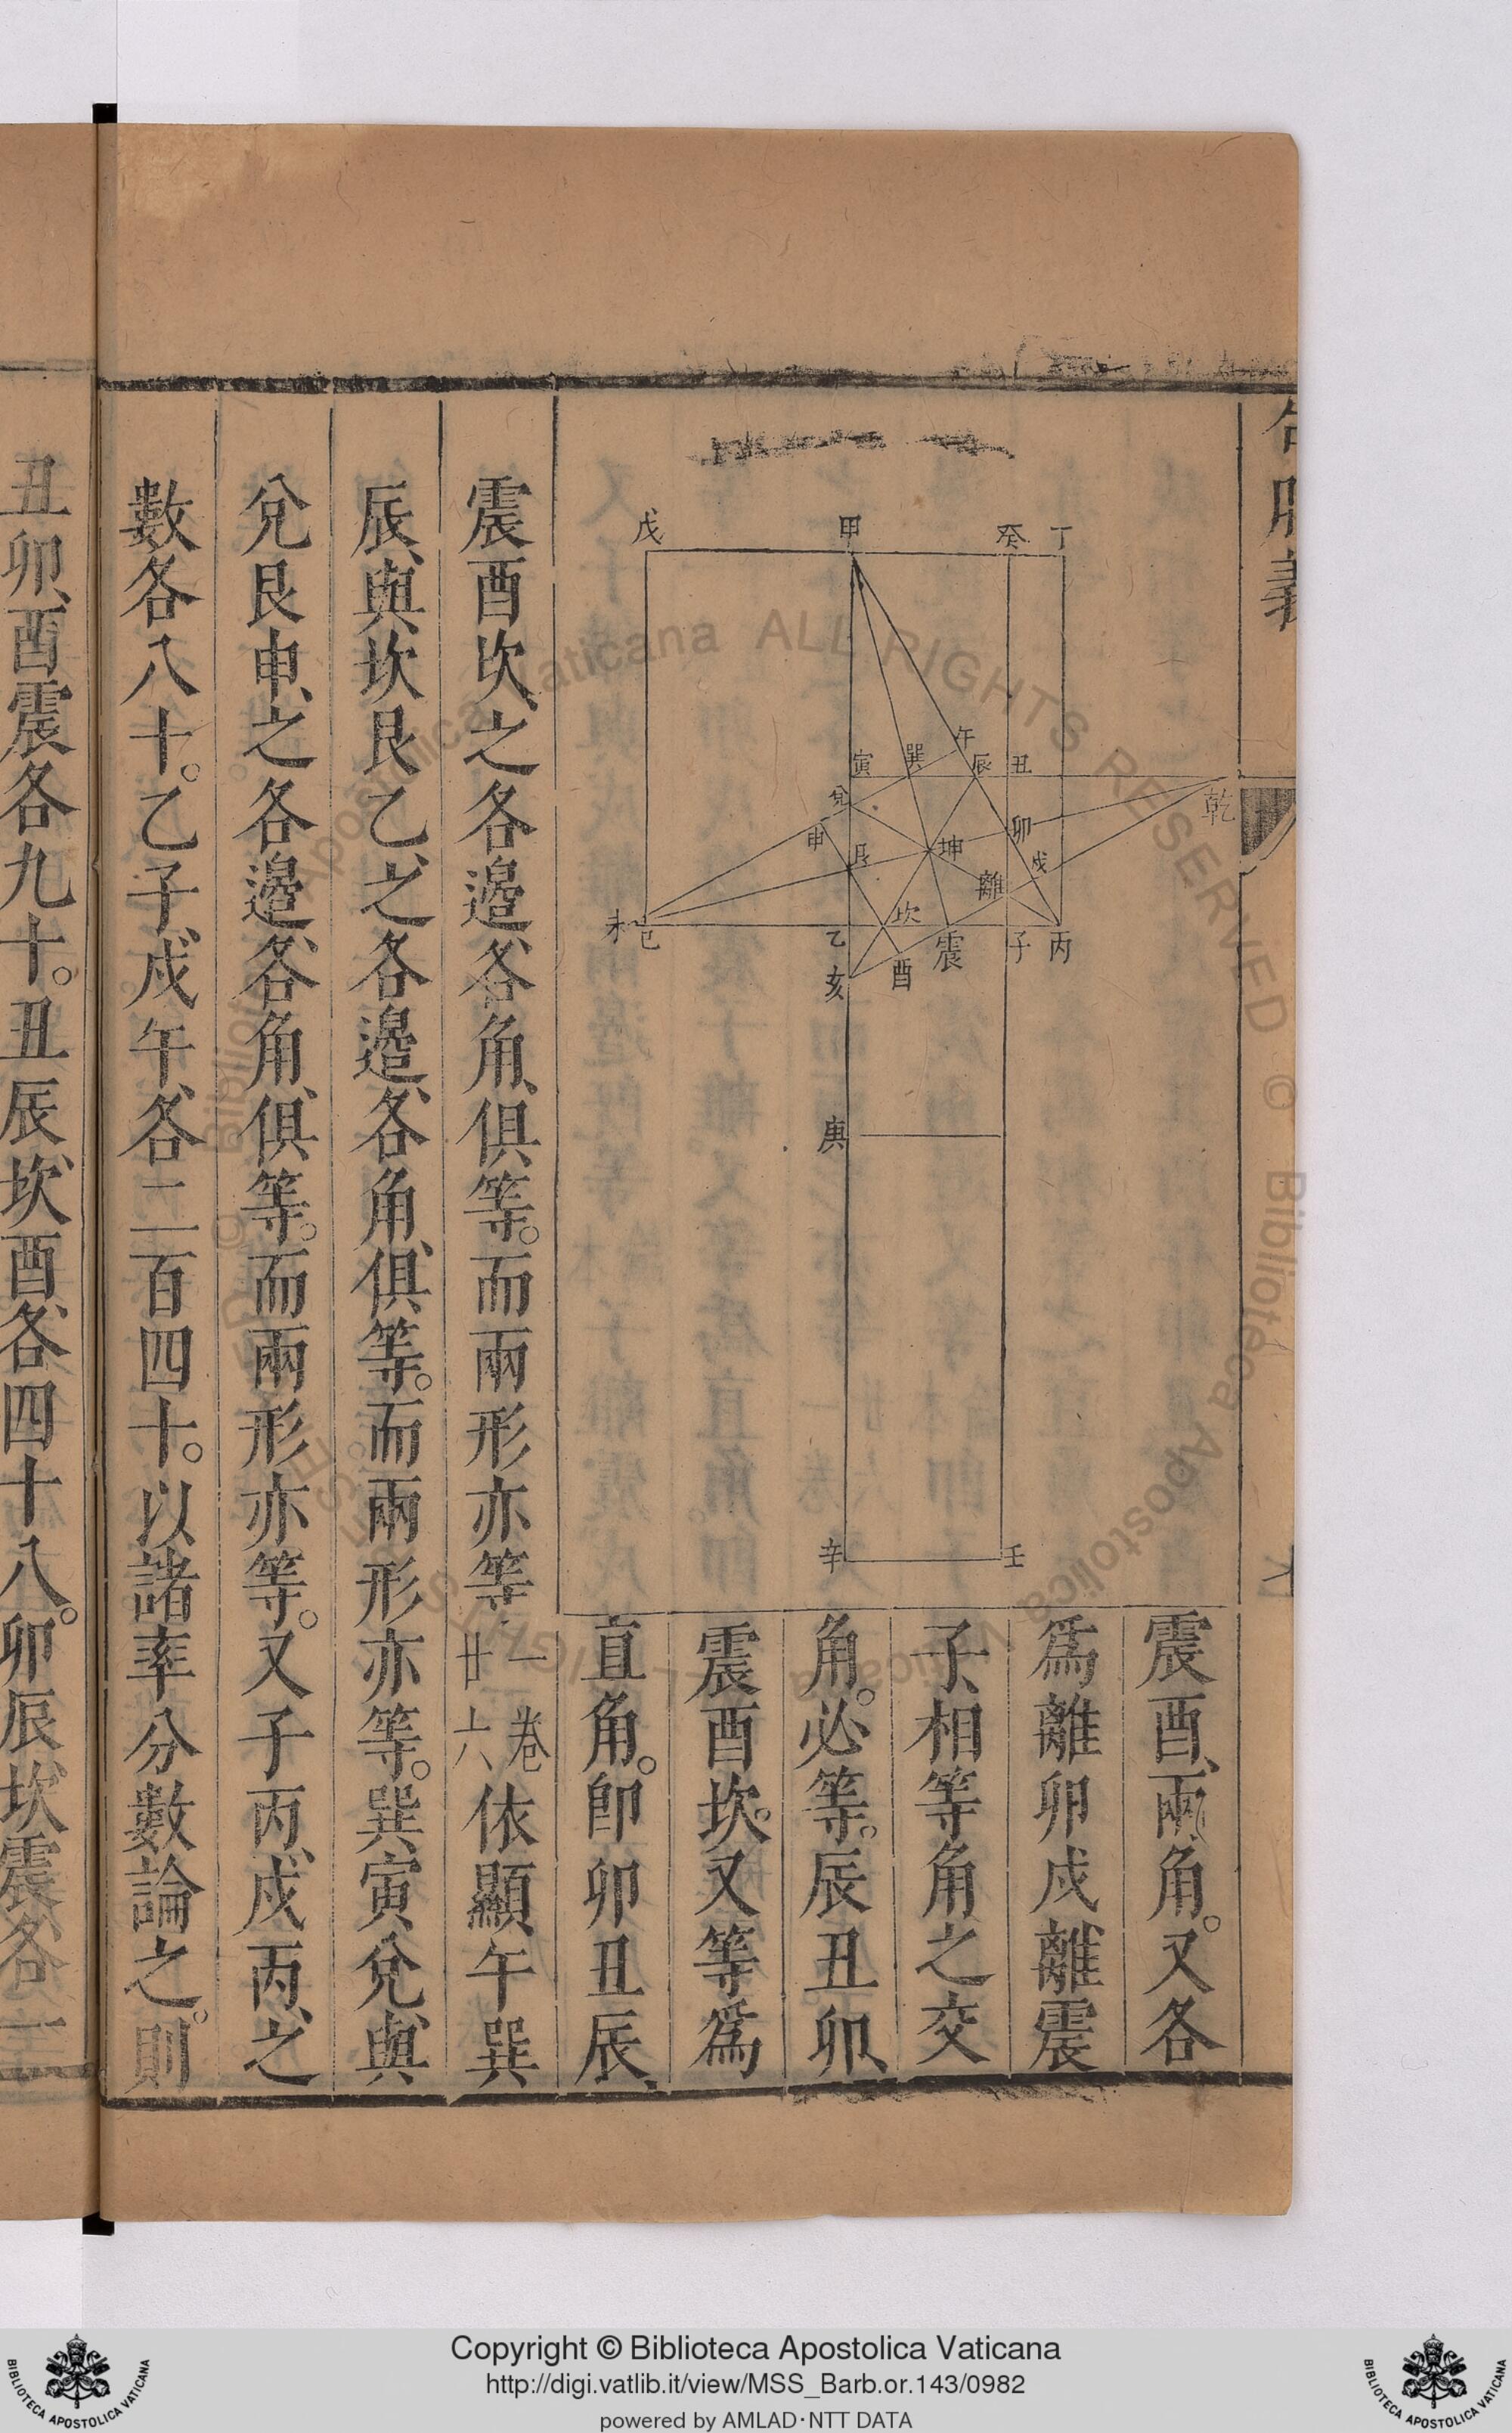 句股義
戊 甲 癸 丁
午
寅 巽 辰 丑
乾
兌
申 艮 坤 卯
戌
離
未 己 乙 坎 震 子 丙
亥 酉
庚
辛 壬
震酉、兩角。又各
爲離卯戌離震
子、相等角之交
角。必等。辰丑卯、
震酉坎。又等爲
直角。卽卯丑辰、
震酉坎、之各邉、各角、俱等。而兩形亦等。一卷廿六依顯、午巽
辰、與坎艮乙、之各邉、各角、俱等。而兩形亦等。巽寅兌、與
兌艮申、之各邉、各角、俱等。而兩形亦等。又子丙、戌丙、之
數各八十。乙子、戌午、各二百四十。以諸率分數論之。則
丑卯、酉震各九十。丑辰、坎酉、各四十八。卯辰、坎震各一
Copyright © Biblioteca Apostolica Vaticana
http://digi.vatlib.it/view/MSS_Barb.or.143/0982
powered by AMLAD·NTT DATA
BIBLIOTECA APOSTOLICA VATICANA
BIBLIOTECA APOSTOLICA VATICANA